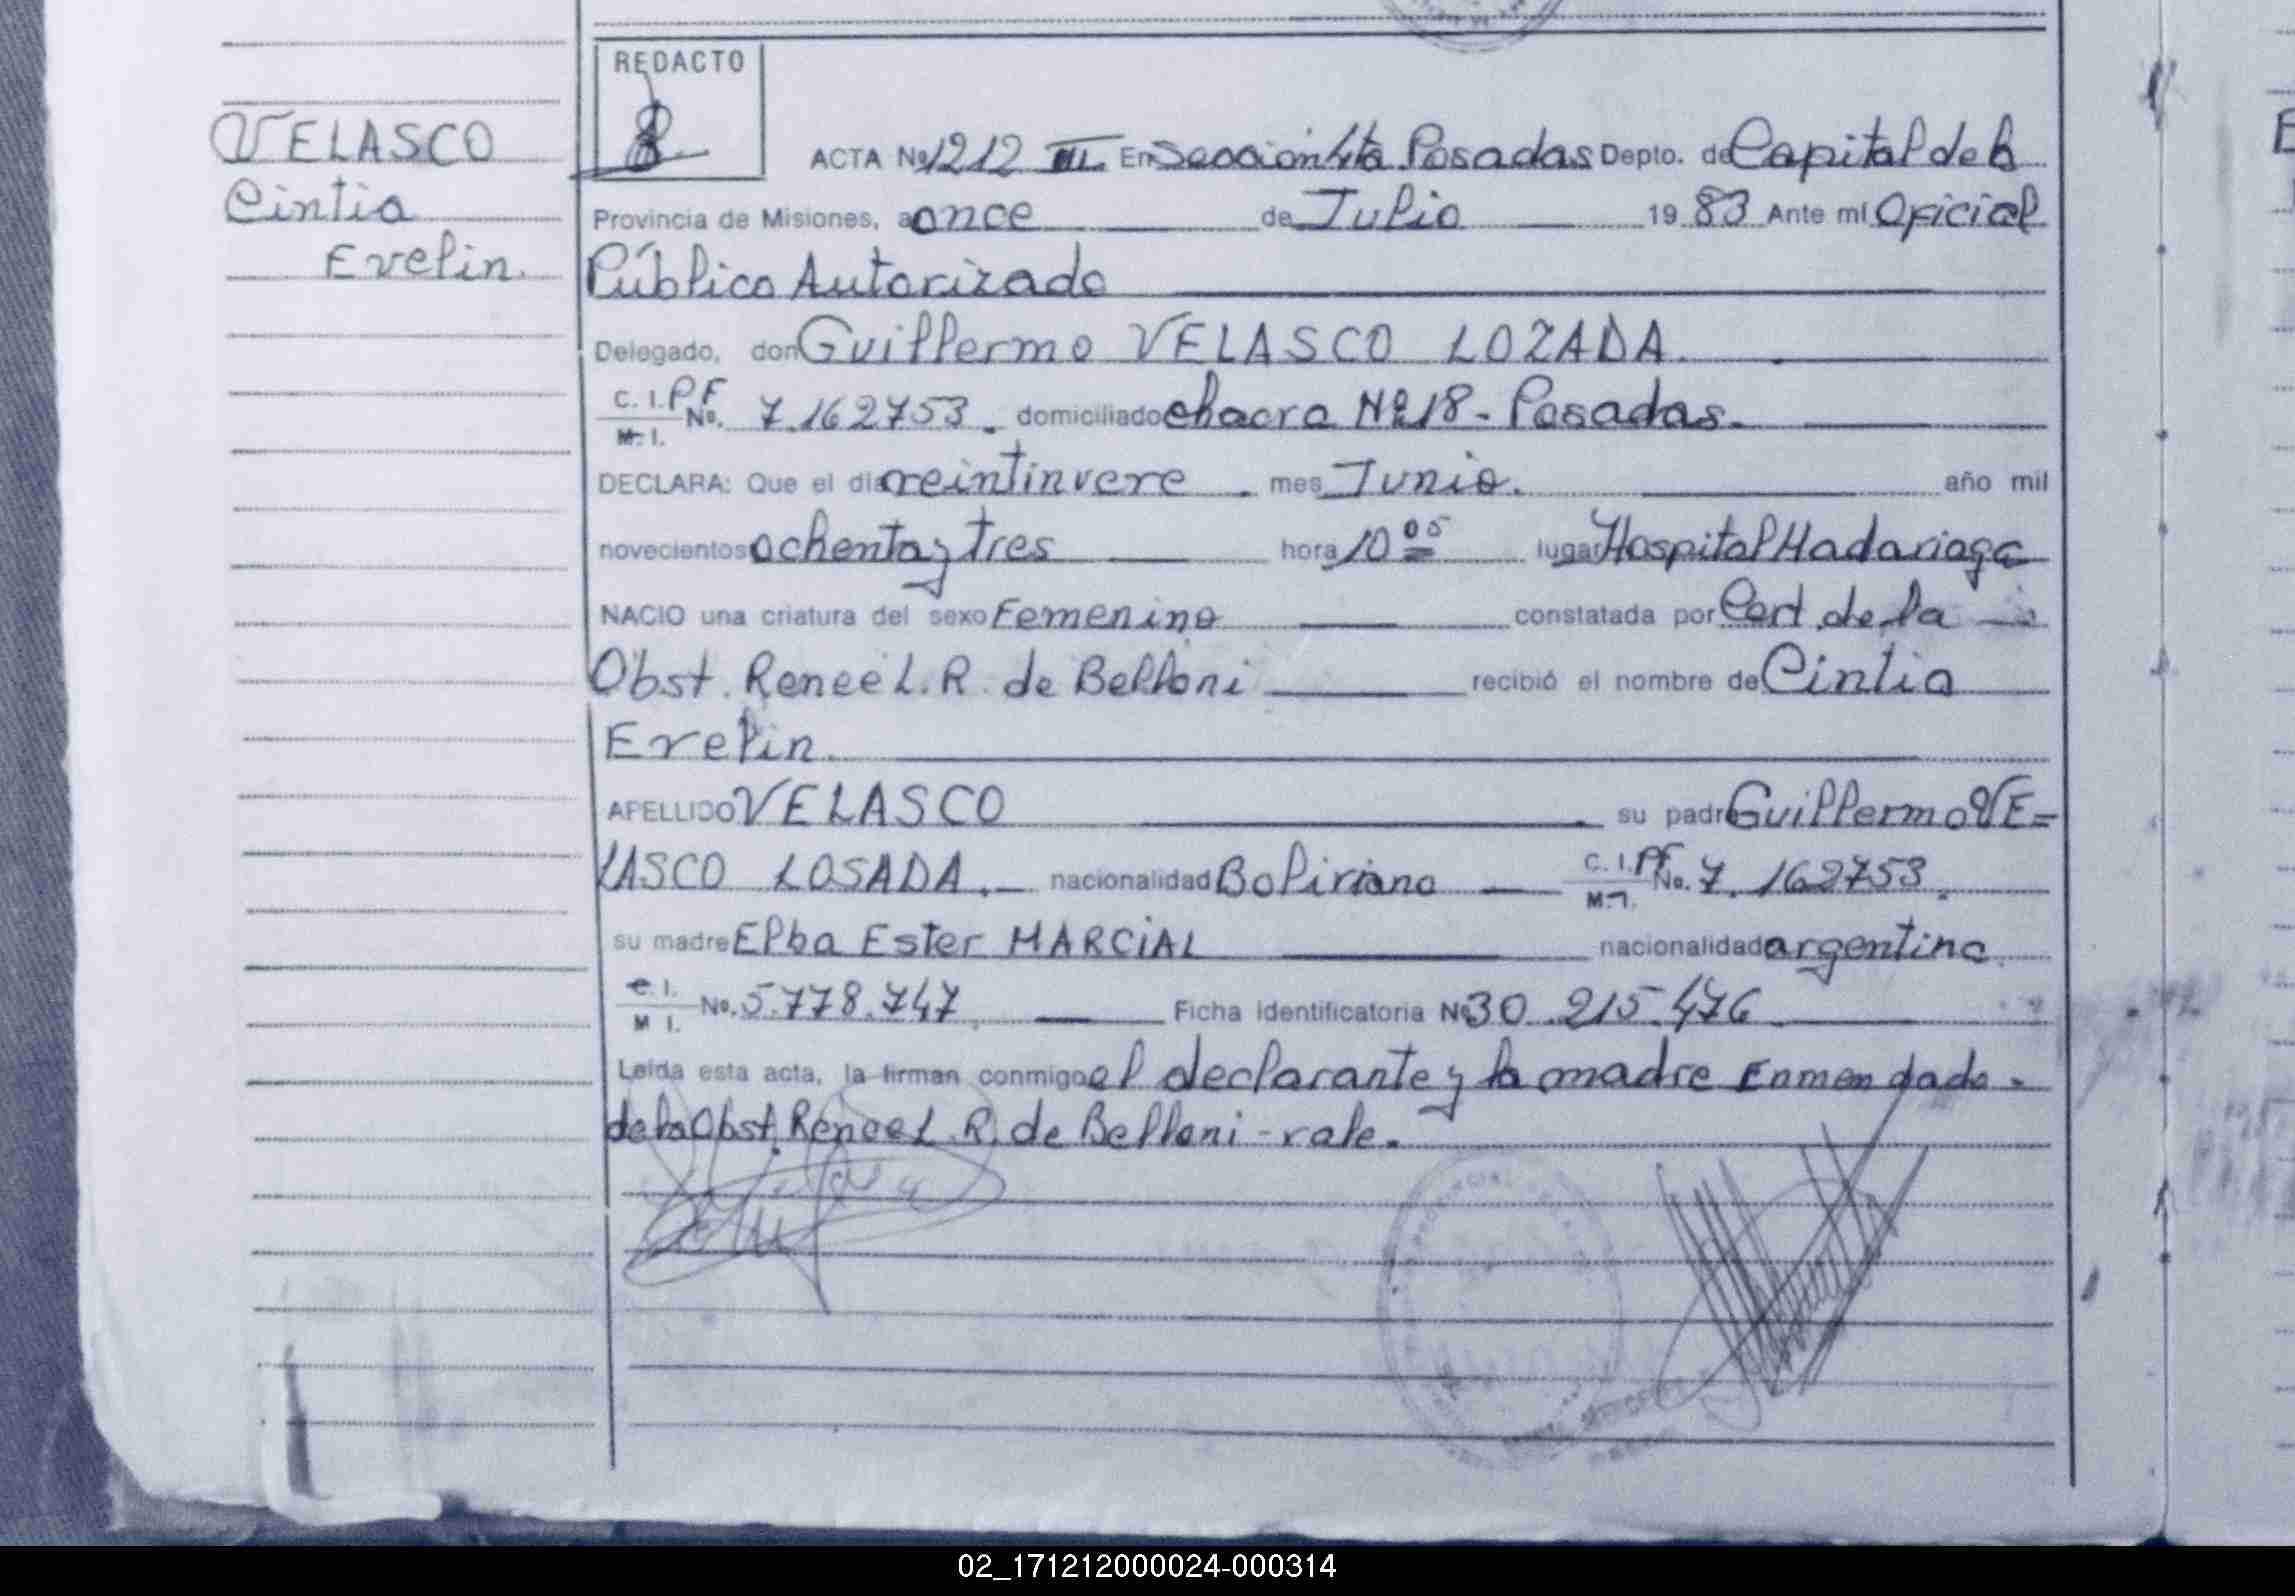 REDACTO
VELASCO
Cintia
Evelin.
ACTA Nº 1212 III En Sección 4ta Posadas Depto. de Capital de la
Provincia de Misiones, a once de Julio 1983 Ante mí Oficial
Público Autorizado
Delegado, don Guillermo VELASCO LOZADA.
C. I. PF
M. I. No. 7.162753. domiciliado chacra Nº 18 - Posadas.
DECLARA: Que el día veintinueve. mes Junio. año mil
novecientos ochenta y tres hora 10 05 lugar Hospital Madariaga
NACIO una criatura del sexo Femenino constatada por Cert. de la
Obst. Renee L. R. de Belloni recibió el nombre de Cintia
Evelin.
APELLIDO VELASCO su padre Guillermo VE=
LASCO LOSADA. nacionalidad Boliviano C. I. PF M. I. No. 7.162753.
su madre Elba Ester MARCIAL nacionalidad argentina.
C. I.
M I. No. 5.778.747. Ficha Identificatoria Nº 30.215.476
Leída esta acta, la firman conmigo el declarante y la madre Enmendado.
de la Obst. Renee L. R. de Belloni - vale.
02_171212000024-000314